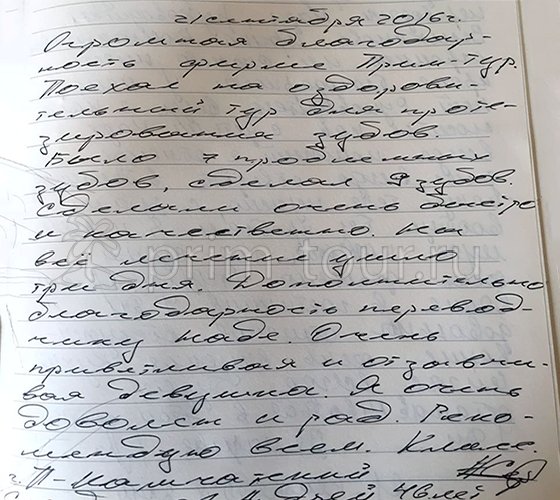 21 сентября 2016г.
Огромная благодар-
ность фирме Прим-тур.
Поехал на оздорови-
тельный тур для проте-
зирования зубов.
Было 7 проблемных
зубов, сделал 9 зубов.
Сделали очень быстро
и качественно. На
всё лечение ушло
три дня. Дополнительно
благодарность перевод-
чику Наде. Очень
приветливая и отзывчи-
вая девушка. Я очень
доволен и рад. Реко-
мендую всем. Класс.
г. П-Камчатский
prim-tour.ru